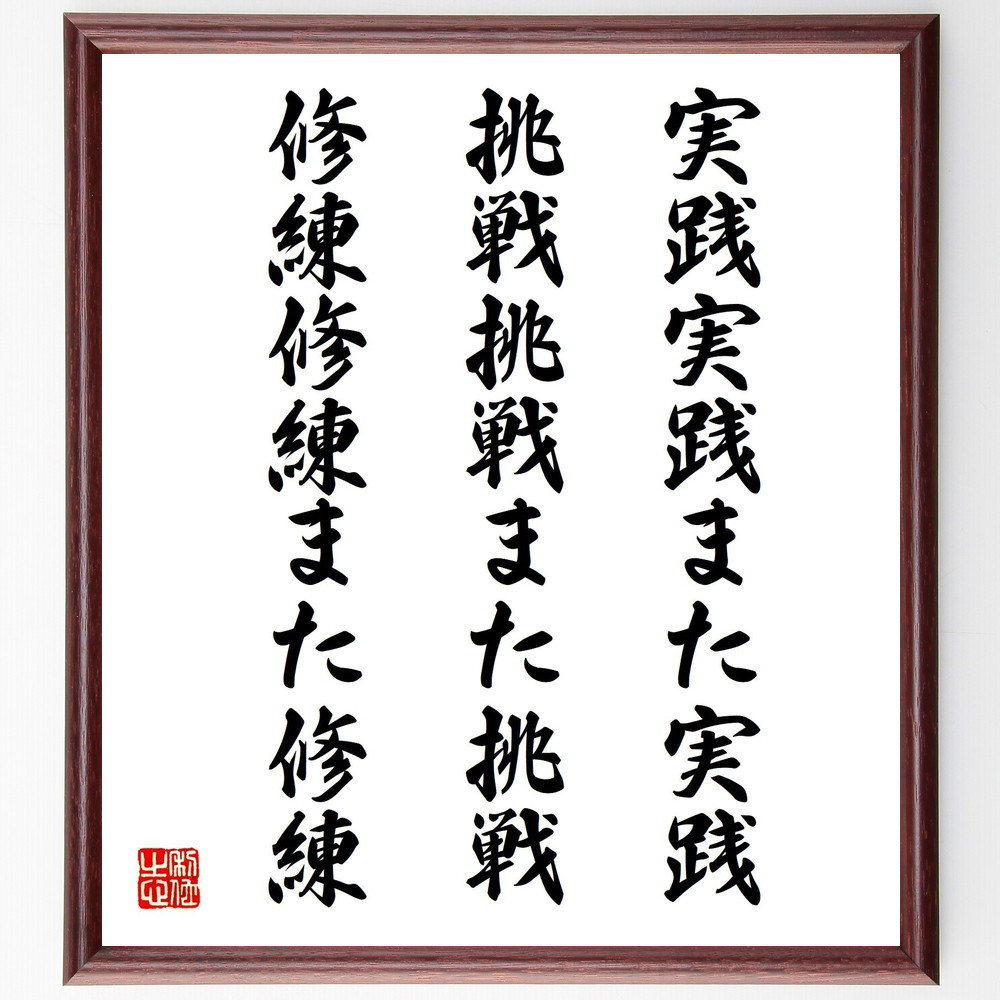 実践実践また実践
挑戦挑戦また挑戦
修練修練また修練